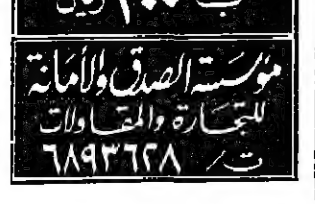 ريال
مؤسسة الصدق والأمانة
للتجارة والمقاولات
ت/ ٦٨٩٣٦٢٨